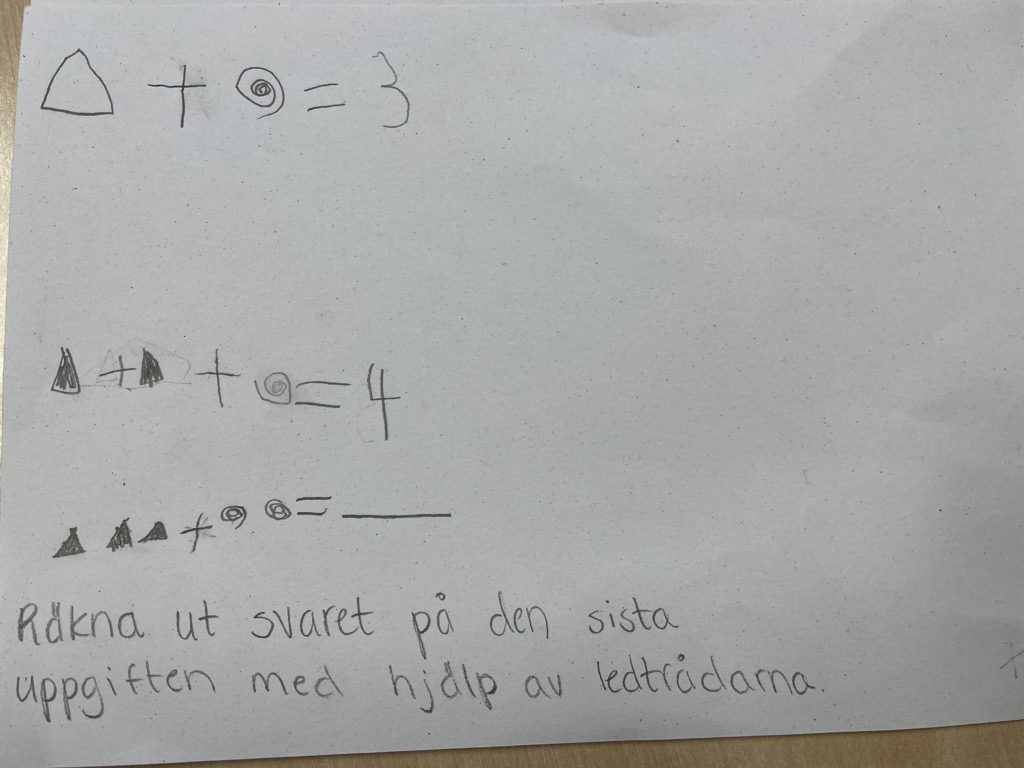 △ + ◎ = 3
▲ + ▲ + ◎ = 4
▲ ▲ ▲ + ◎ ◎ = ___
Räkna ut svaret på den sista
uppgiften med hjälp av ledtrådarna.